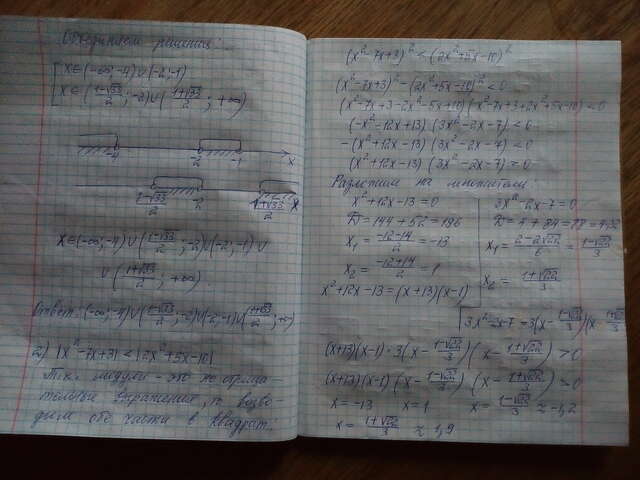 Объединяем решения:
[ x∈(-∞; -4)∪(-2; -1)
[ x∈((1-√33)/2; -2)∪((1+√33)/2; +∞)
-4 -2 -1 x
(1-√33)/2 -2 (1+√33)/2 x
x∈(-∞; -4)∪((1-√33)/2; -2)∪(-2; -1)∪
∪((1+√33)/2; +∞).
Ответ: (-∞; -4)∪((1-√33)/2; -2)∪(-2; -1)∪((1+√33)/2; +∞)
2) |x²-7x+3| < |2x²+5x-10|
Т.к. модули - это не отрица-
тельные выражения, то возво-
дим обе части в квадрат:
(x²-7x+3)² < (2x²+5x-10)²
(x²-7x+3)² - (2x²+5x-10)² < 0
(x²-7x+3-2x²-5x+10)(x²-7x+3+2x²+5x-10) < 0
(-x²-12x+13)(3x²-2x-7) < 0
-(x²+12x-13)(3x²-2x-7) < 0
(x²+12x-13)(3x²-2x-7) > 0
Разложим на множители:
x²+12x-13=0
D=144+52=196
x₁ = (-12-14)/2 = -13
x₂ = (-12+14)/2 = 1
x²+12x-13=(x+13)(x-1)
3x²-2x-7=0
D=4+84=88=4·22
x₁ = (2-2√22)/6 = (1-√22)/3
x₂ = (1+√22)/3
3x²-2x-7=3(x-(1-√22)/3)(x-(1+√22)/3)
(x+13)(x-1)·3(x-(1-√22)/3)(x-(1+√22)/3) > 0
(x+13)(x-1)(x-(1-√22)/3)(x-(1+√22)/3) > 0
x=-13 x=1 x=(1-√22)/3 ≈ -1,2
x=(1+√22)/3 ≈ 1,9